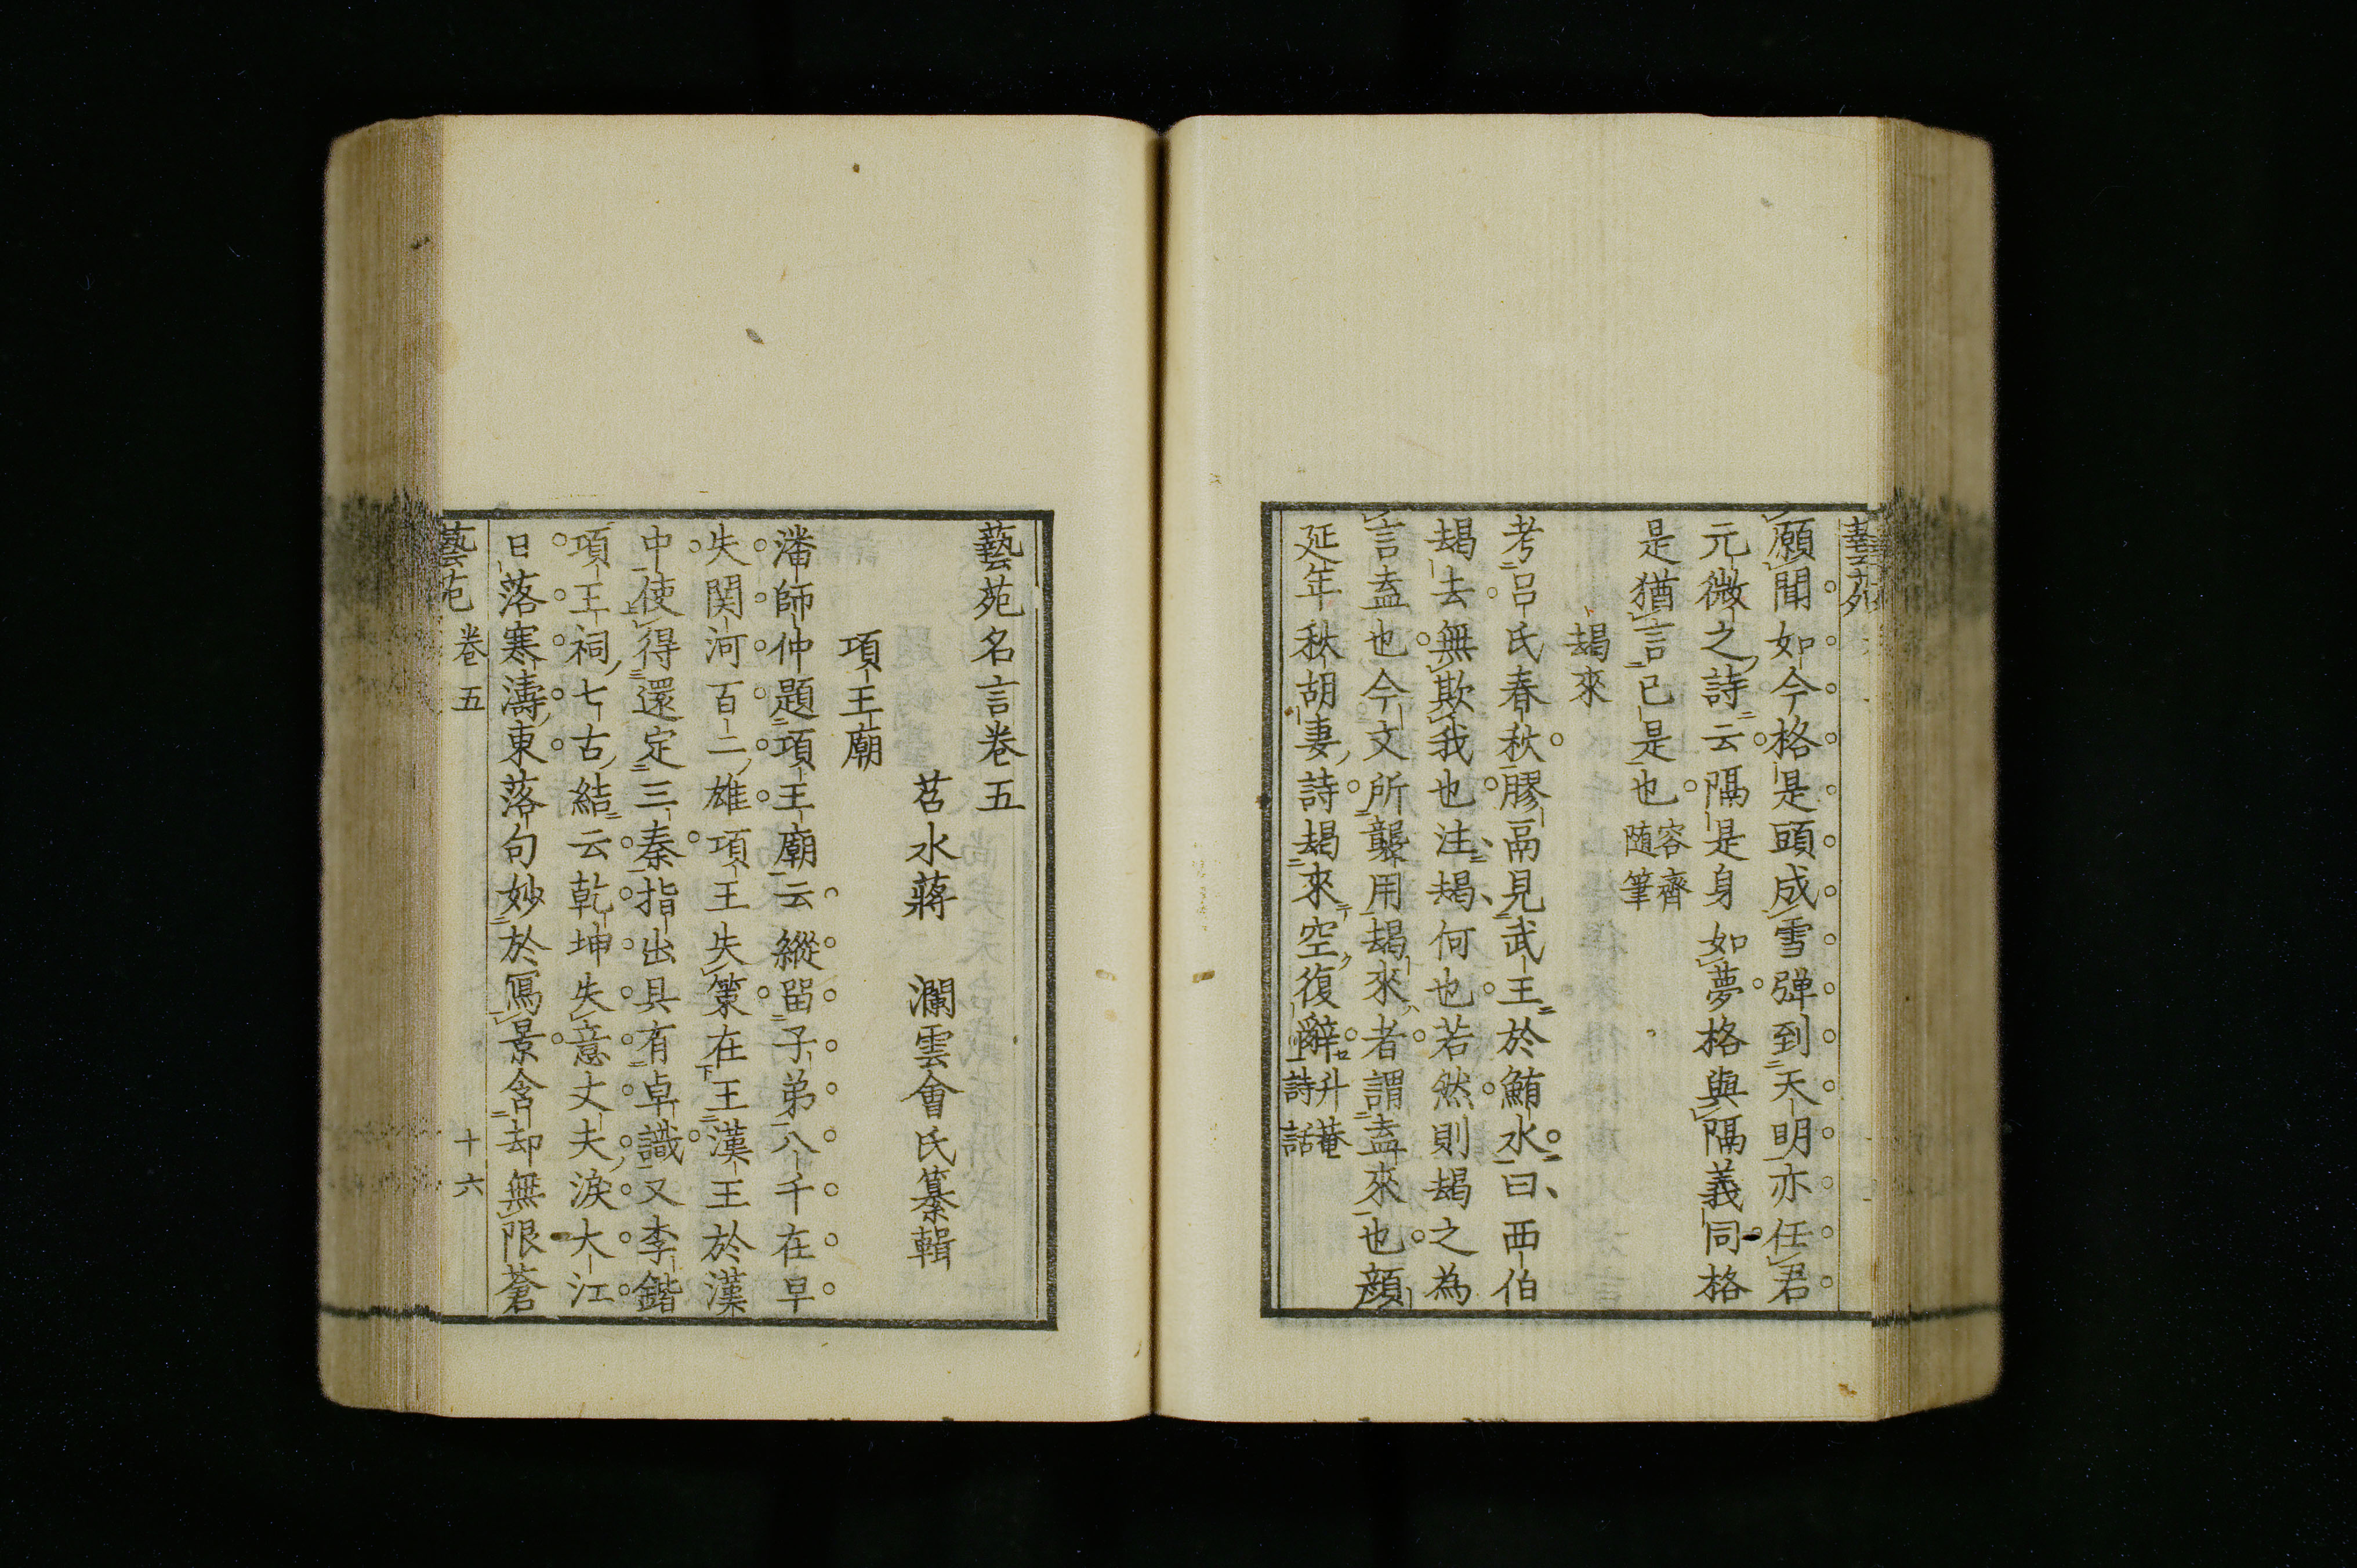 願聞如今格是頭成雪彈到天明亦任君
元微之詩云隔是身如夢格與隔義同格
是猶言已是也容齊随筆
朅來
考呂氏春秋膠鬲見武王於鮪水曰西伯
朅去無欺我也注朅何也若然則朅之為
言盍也今文所襲用朅來者謂盍來也顔
延年秋胡妻詩朅來空復辭升菴詩話
藝苑名言卷五
苕水蔣　瀾雲會氏纂輯
項王廟
潘師仲題項王廟云縱留子弟八千在早
失関河百二雄項王失策在王漢王於漢
中使得還定三秦指出具有卓識又李鍇
項王祠七古結云乾坤失意丈夫淚大江
日落寒濤東落句妙於寫景含却無限蒼
藝苑　卷五　十六